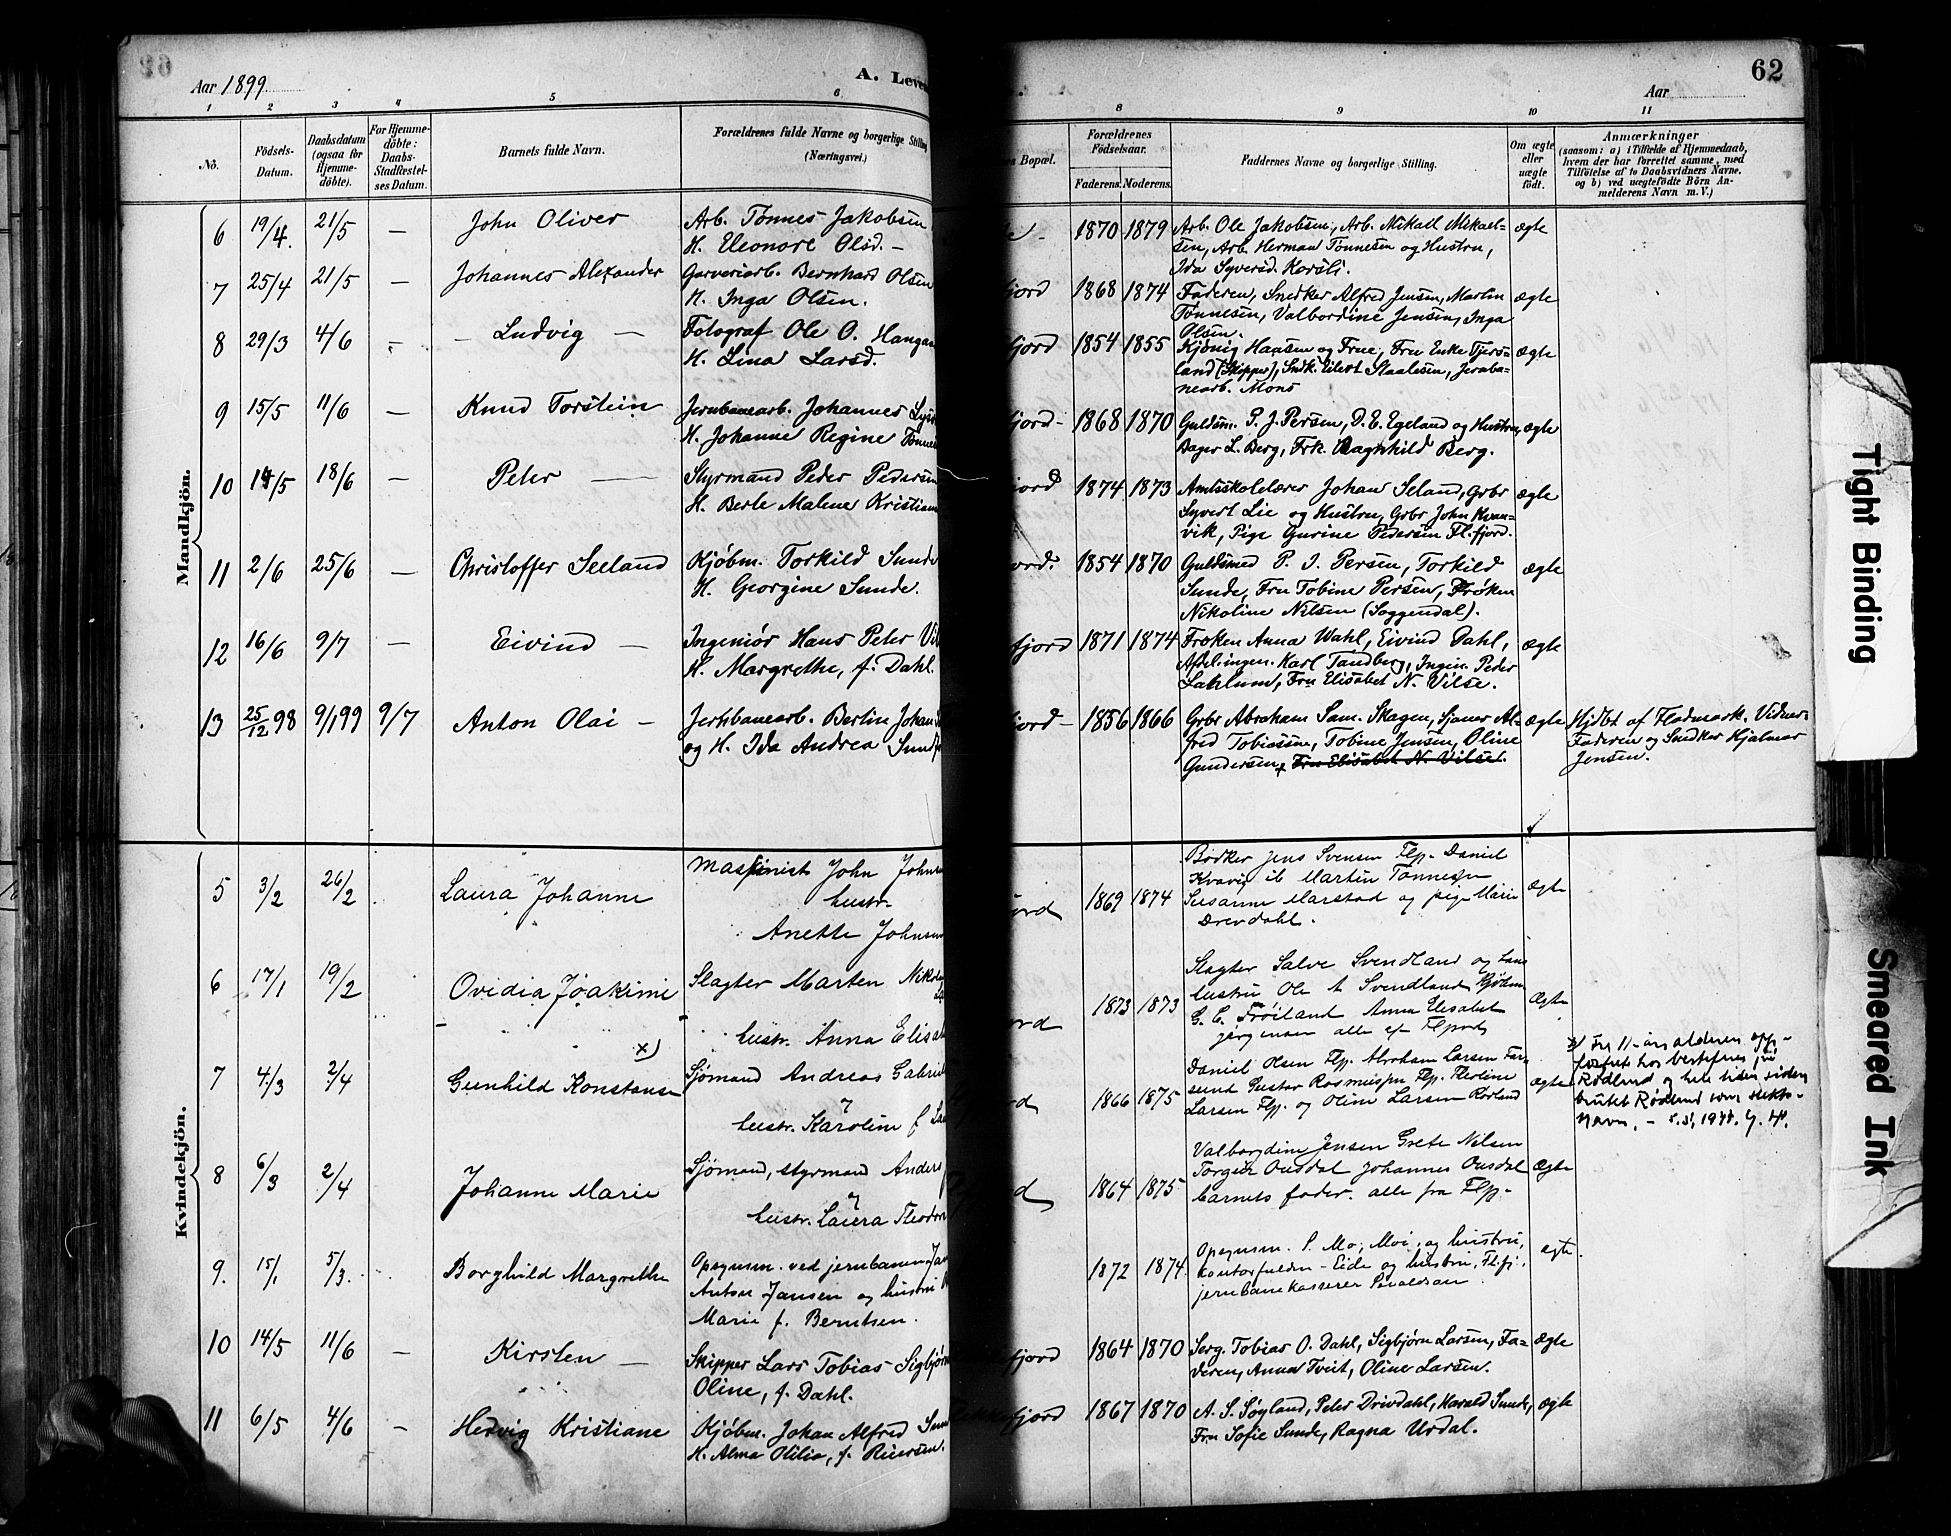 Aar 1899
A. Leve
62
Aar
1 2 3 4 5 6 8 9 10 11
No.
Födsels-
Datum.
Daabsdatum
(ogsaa for
Hjemme-
döbte).
For Hjemme-
döbte:
Daabs-
Stadfestel-
ses Datum.
Barnets fulde Navn.
Forældrenes fulde Navne og borgerlige Stilling
(Næringsvei).
s Bopæl.
Forældrenes
Födselsaar.
Faderens. Moderens.
Faddernes Navne og borgerlige Stilling.
Om ægte
eller
uægte
födt.
Anmærkninger
(saasom: a) i Tilfælde af Hjemmedaab,
hvem der har forrettet samme, med
Tilföielse af to Daabsvidners Navne,
og b) ved uægtefödte Börn An-
melderens Navn m. V.)
Mandkjön.
6 19/4. 21/5 — John Oliver
Arb. Tønnes Jakobsen
H. Eleonore Olsd. —
1870 1879
Arb. Ole Jakobsen, Arb. Mikael Mikael-
sen, Arb. Herman Tønnesen og Hustru,
Ida Syversd. Korsli.
ægte
7 25/4 21/5 — Johannes Alexander
Garveriarb. Bernhard Olsen
H. Inga Olsen.
fjord 1868 1874
Faderen, Snedker Alfred Jensen, Martin
Tønnesen, Valbordine Jensen, Inga
Olsen.
ægte
8 29/3 4/6 — Ludvig —
Fotograf Ole O. Hangan
H. Lina Larsd.
fjord 1854 1855
Kjønig Hansen og Frue, Fru Enke Tjers-
land (Skipper), Sndk. Eilert Staalesen, Jernba-
nearb. Mons
ægte
9 15/5 11/6 — Knud Torstein
Jernbanearb. Johannes
H. Johanne Regine Tønnes
fjord- 1868 1870
Guldsm. P. J. Persen, D. E. Egeland og Hustru,
Bager L. Berg, Frk. Ragnhild Berg.
ægte
10 14/5 18/6 — Peter —
Styrmand Peder Pedersen
H. Berte Malene Kristians
fjord 1874 1873
Amtsskolelærer Johan Seland, Grbr
Syvert Lie og Hustru, Grbr John Kvan-
vik, Pige Gurine Pedersen Fl.fjord.
ægte
11 2/6 25/6 — Christoffer Seeland
Kjøbm. Torkild Sunde
H. Georgine Sunde.
ord. 1854 1870
Guldsmed P. J. Persen, Torkild
Sunde, Fru Tobine Persen, Frøken
Nikoline Nilsen (Soggendal).
ægte
12 16/6 9/7 — Eivind —
Ingeniør Hans Peter Vil
H. Margrethe, f. Dahl.
fjord 1871 1874
Frøken Anna Wahl, Eivind Dahl,
Afdelingen. Karl Tandberg, Ingen. Peder
Lahlum, Fru Elisabet N. Vilse.
ægte
13 25/12 98 9/1 99 9/7 Anton Olai —
Jernbanearb. Bertin Johan
og H. Ida Andrea Sund
fjord- 1856 1866
Grbr Abraham Sam. Skagen, Sjømr Al-
fred Tobiassen, Tobine Jensen, Oline
Gundersen, Fru Elisabet N. Vilse.
ægte
Hjdbt af Flodmark. Vidner
Faderen og Snedker Hjalmar
Jensen.
Kvindekjön.
5 3/2 26/2 Laura Johanne
Maskinist John Johns
hustr.
Anette Johnsen
fjord 1869 1874
Bødker Jens Svensen Flf. Daniel
Kvavig ib Martin Tønnesen
Susanne Marstad og pige Marie
Drevdahl.
ægte
6 17/1 19/2 Ovidia Joakime
Slagter Marten Nikol
hustr. Anna Elisab
ord 1873 1873
Slagter Salve Svendland og hans
hustru Ole A Svendland Kjøbm
G. C. Frøiland Anna Elisabet
Jørgensen alle af Flfjord
Ægte
7 4/3 2/4 Gunhild Konstanse x)
Sjømand Andreas Gabriel
hustr. Karoline f. La
rd 1866 1875
Daniel Olsen Flf. Abraham Larsen Far-
sund Gustav Rasmussen Flf. Theoline
Larsen Flf. og Oline Larsen Rødland
ægte
x) Fra 11-års alderen opp-
fostret hos besteforen på
Rødland og hele tiden siden
brukt Rødland som slekts-
navn. —
8 6/3 2/4 Johanne Marie
Sjømand, styrmand Anders
hustr. Laura Theodor
d 1864 1875
Valborgdine Jensen Grete Nilsen
Torger Ousdal Johannes Ousdal
barnets fader. alle fra Flf-
Ægte
9. 15/1 5/3. Borghild Margrethe
Opsynsm. ved jernbanen Jan
Anton Jansen og hustru
Marie f. Berntsen.
1872 1874
Opsynsm. S. Mo, Moi, og hustru,
kontorfuldm - Eide og hustru, Fl.fj.,
jernbanekasserer
ægte.
10 14/5 11/6 — Kirsten —
Skipper Lars Tobias Sigbjørn
Oline, f. Dahl.
fjord 1864 1870
Serg. Tobias O. Dahl, Sigbjørn Larsen, Fa-
deren, Anna Tveit, Oline Larsen.
ægte
11 6/5 4/6 — Hedvig Kristiane
Kjøbm. Johan Alfred Sun
H. Alma Otilia, f. Reiersen.
fjord 1867 1870
A. S. Søyland, Peter Drivdahl, Harald Sunde,
Fru Sofie Sunde, Ragna Urdal.
ægte
Tight Binding
Smeared Ink